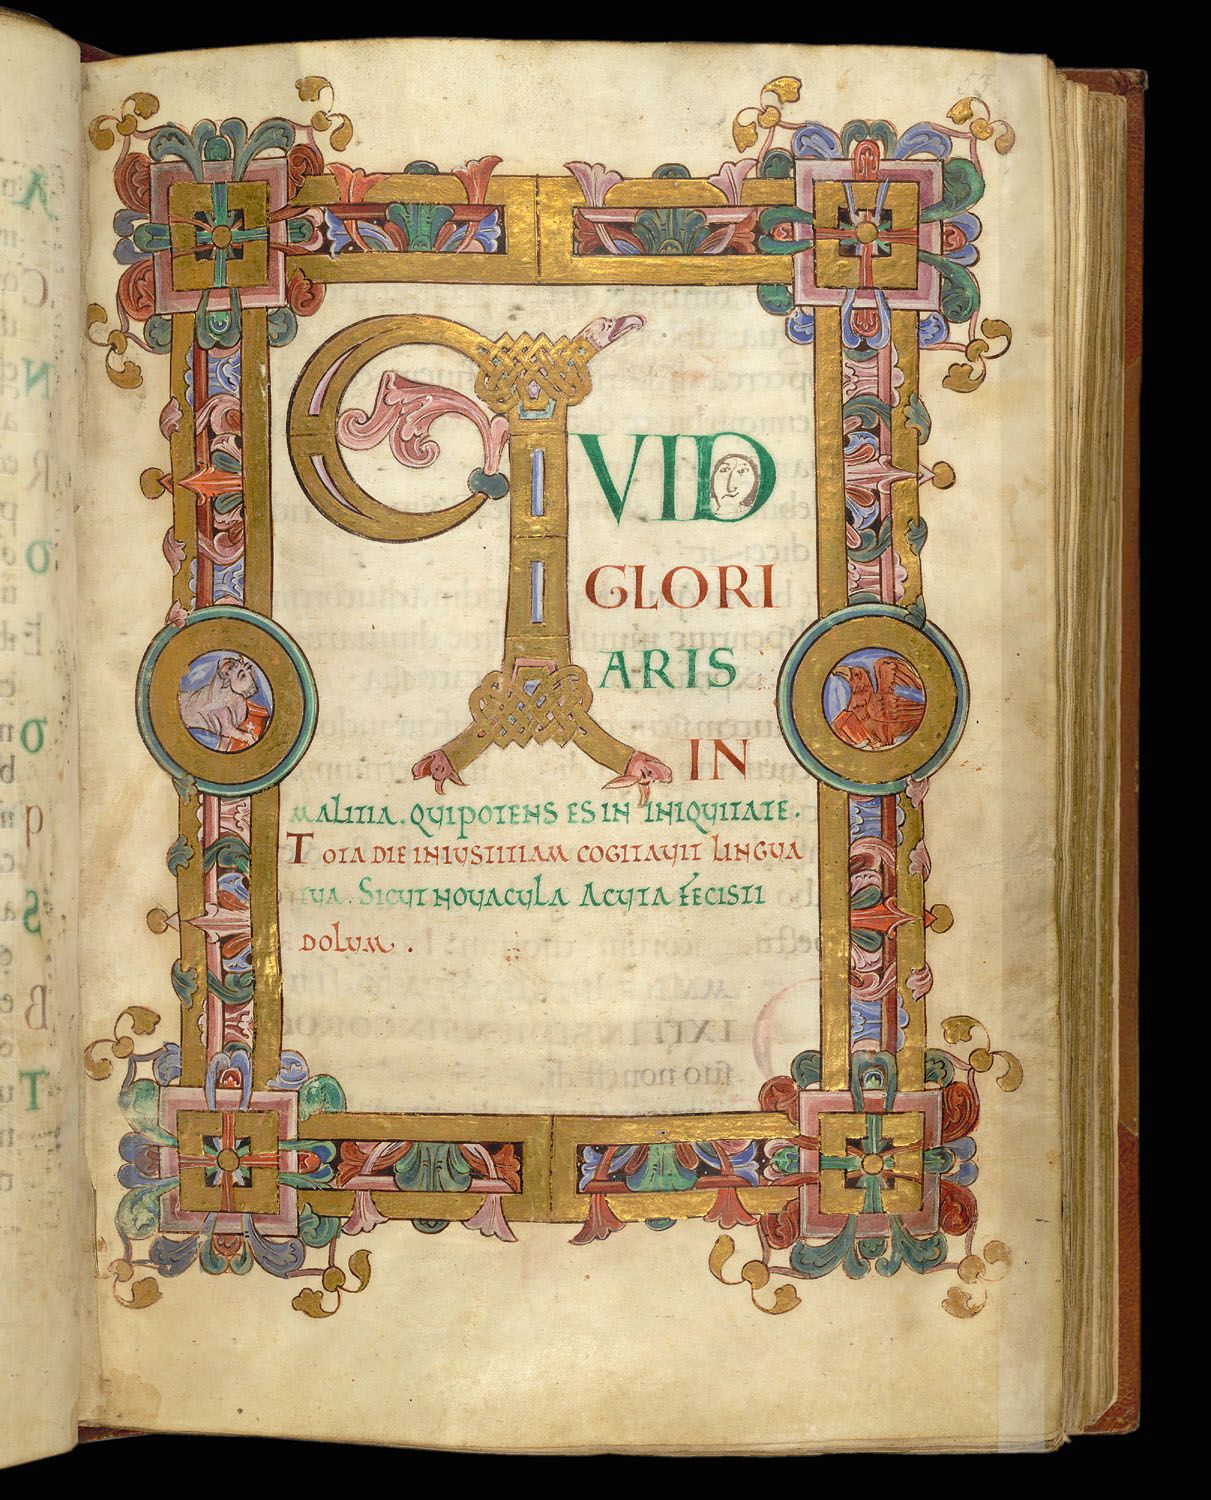 53
QVID
GLORI
ARIS
IN
MALITIA. QUI POTENS ES IN INIQUITATE.
TOTA DIE INIUSTITIAM COGITAUIT LINGUA
TUA. SICUT NOUACULA ACUTA FECISTI
DOLUM.